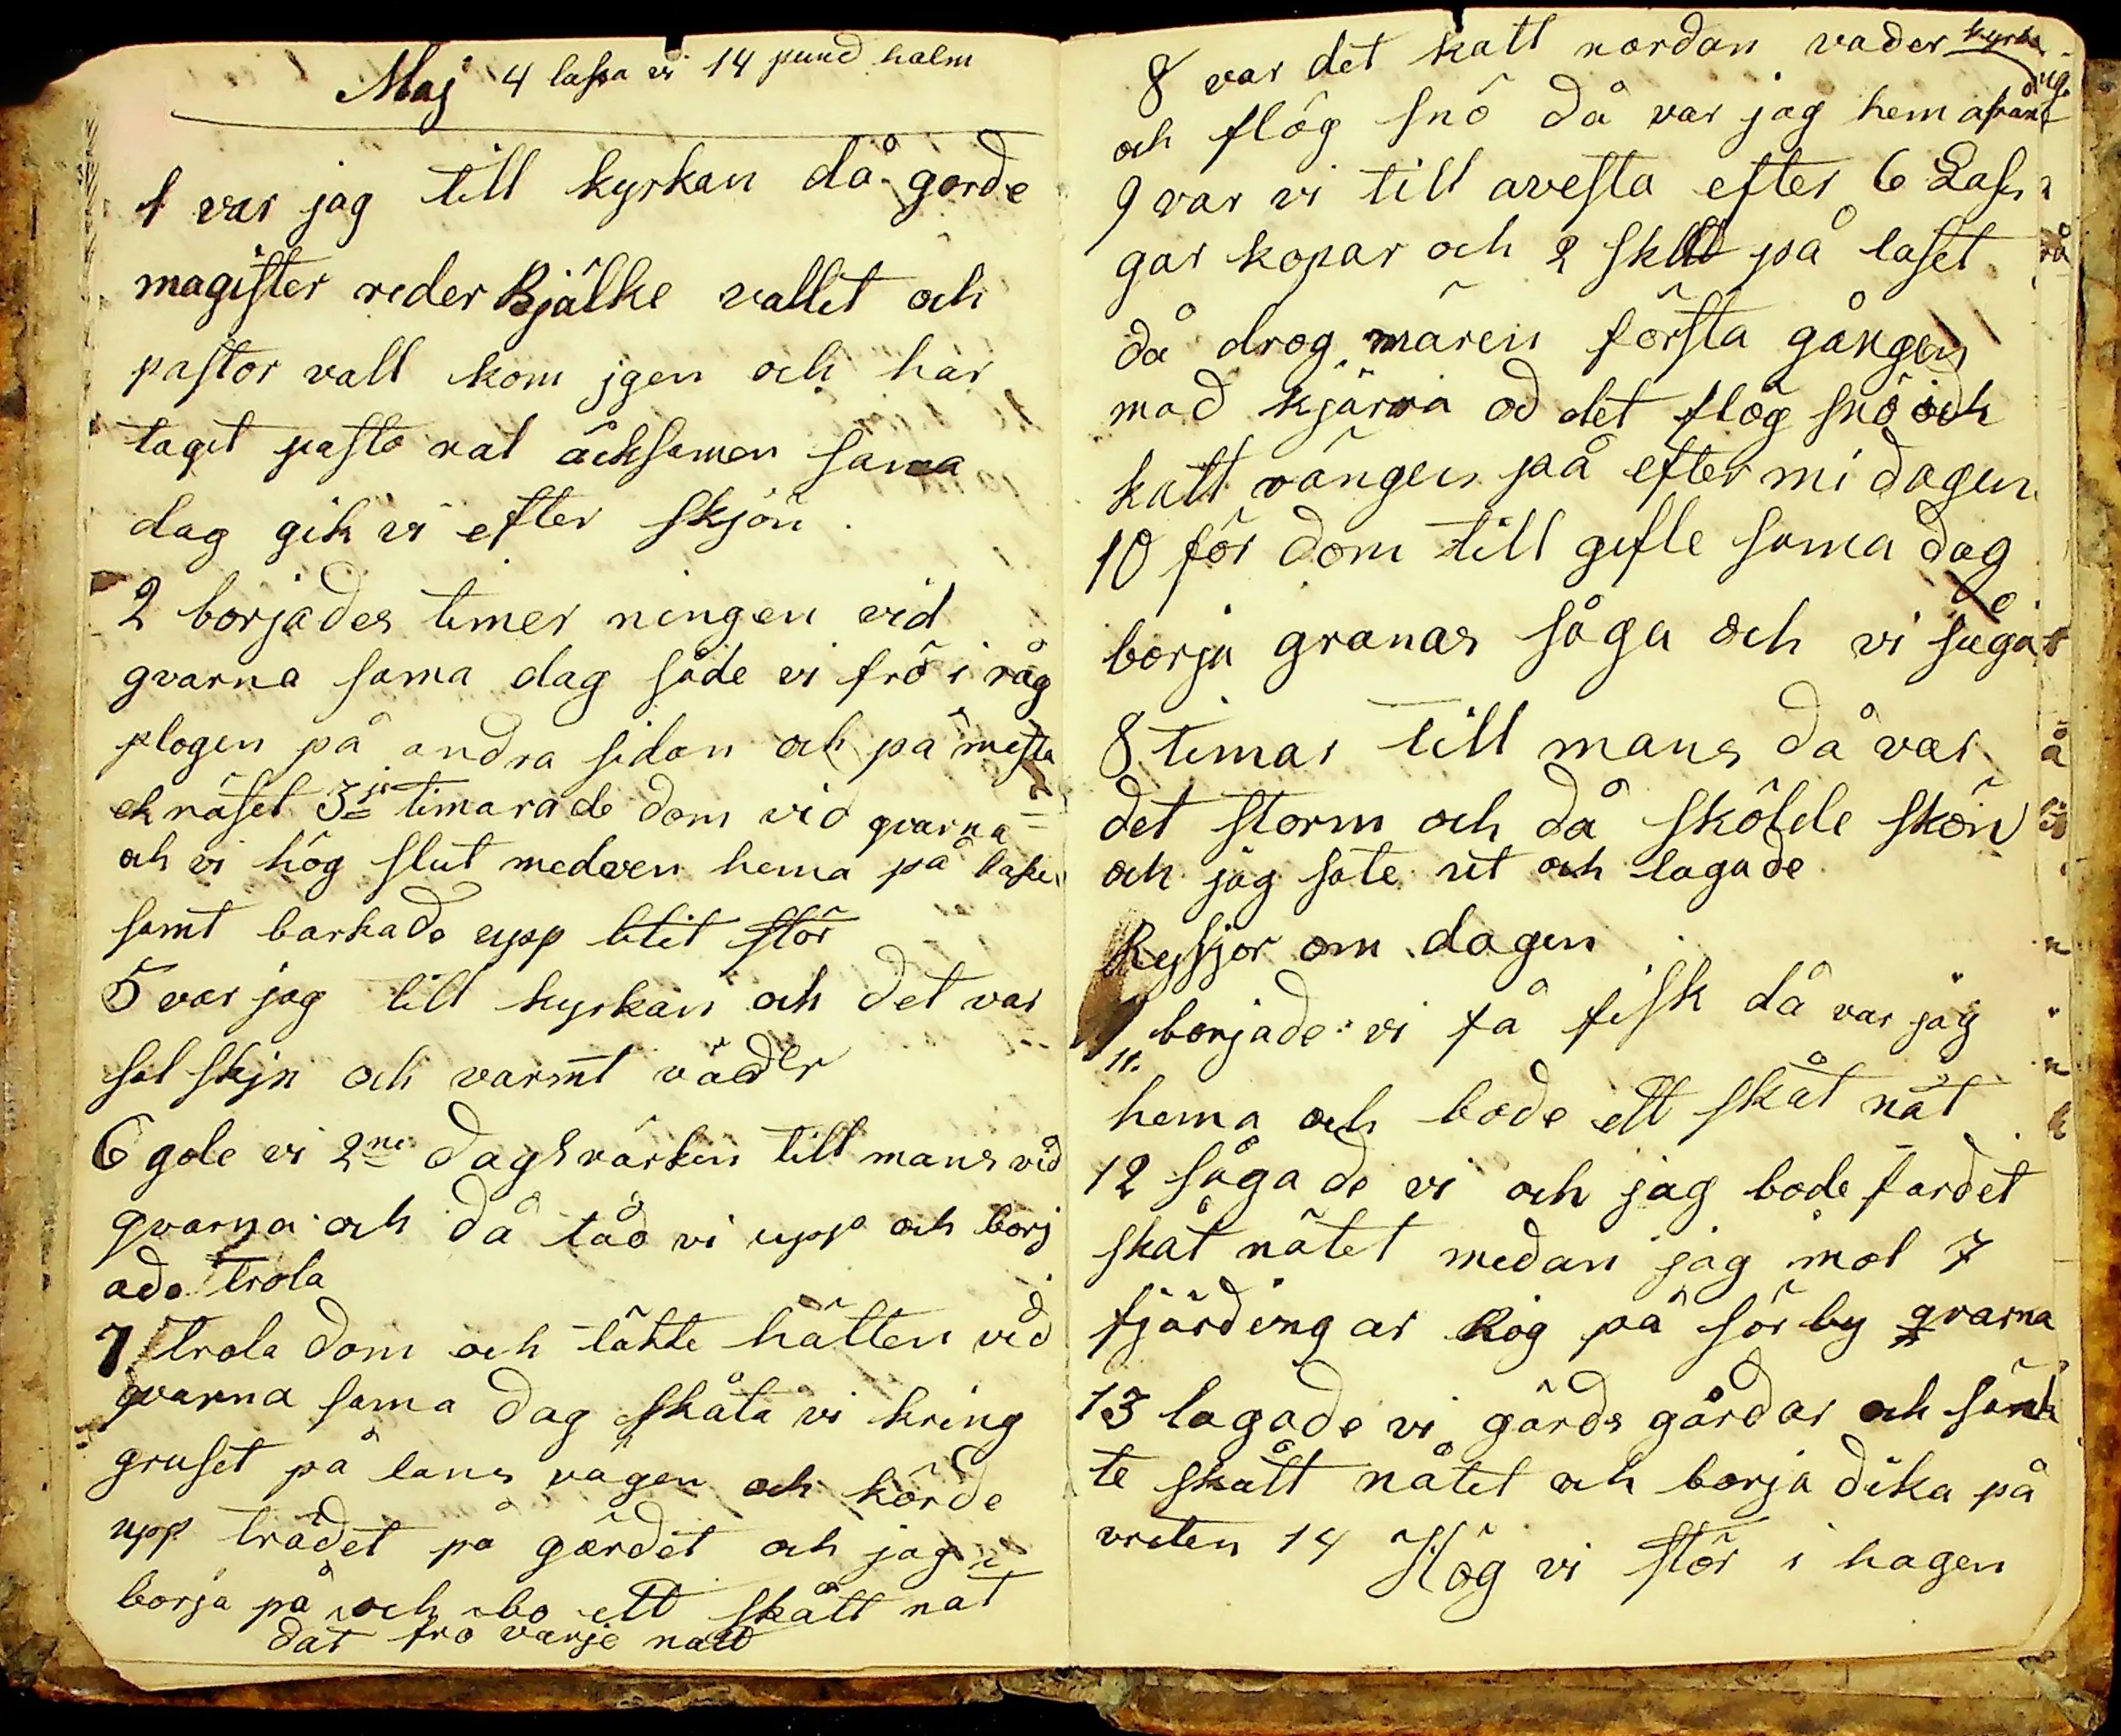 Maj 4 lassa vi 14 pund halm
1 var jag till kyrkan då gorde
magister reder Bjälke vallet och
pastor vall kom jgen och har
taget pasto ral äcksamen sama
dag gik vi efter skjön
2 borjades timer ningen vid
gvarna sama dag såde vi frö i råg
plogen på andra sidan och på mesta
ek räset 3je timarade dom vid gvarna
och vi hög slut medven hema på
samt barkade upp litit stör
5 var jag till kyrkan och det var
sol skjn och varmt väder
6 gole vi 2ne dagsvärken till mans vid
gvarna och då tåd vi upp och borj
ade trola
7 trola dom och täkte hätten vid
gvarna sama dag skåta vi kring
gruset på lans vägen och körde
upp trädet på gärdet och jag
borja på och bo ett skått nät
dat fro varje natt
8 var det kalt nordan vader kyrko
och flög snö då var jag hem
9 var vi till avesta efter 6 Lass
gar kopar och 2 skltd på laset
då drog mären första gången
mäd kjärra od det flög snö och
katt vängen på efter mi dagen
10 för dom till gefle sama dag
borja granas såga och vi sågade
8 timar till mans då var
det storm och då skölde skön
och jag sate ut och lagade
Ryssjor om dagen
11. borjade vi få fisk då var jag
hema och bode ett skåt nät
12 sågade vi och jag bode fardet
skåt nätet medan jag mol 7
fjärdingar Rog på sörby gvarna
13 lagade vi gärds gårdar och sänk
te skått nätet och borja dika på
vreten 14 Hög vi stör i hagen